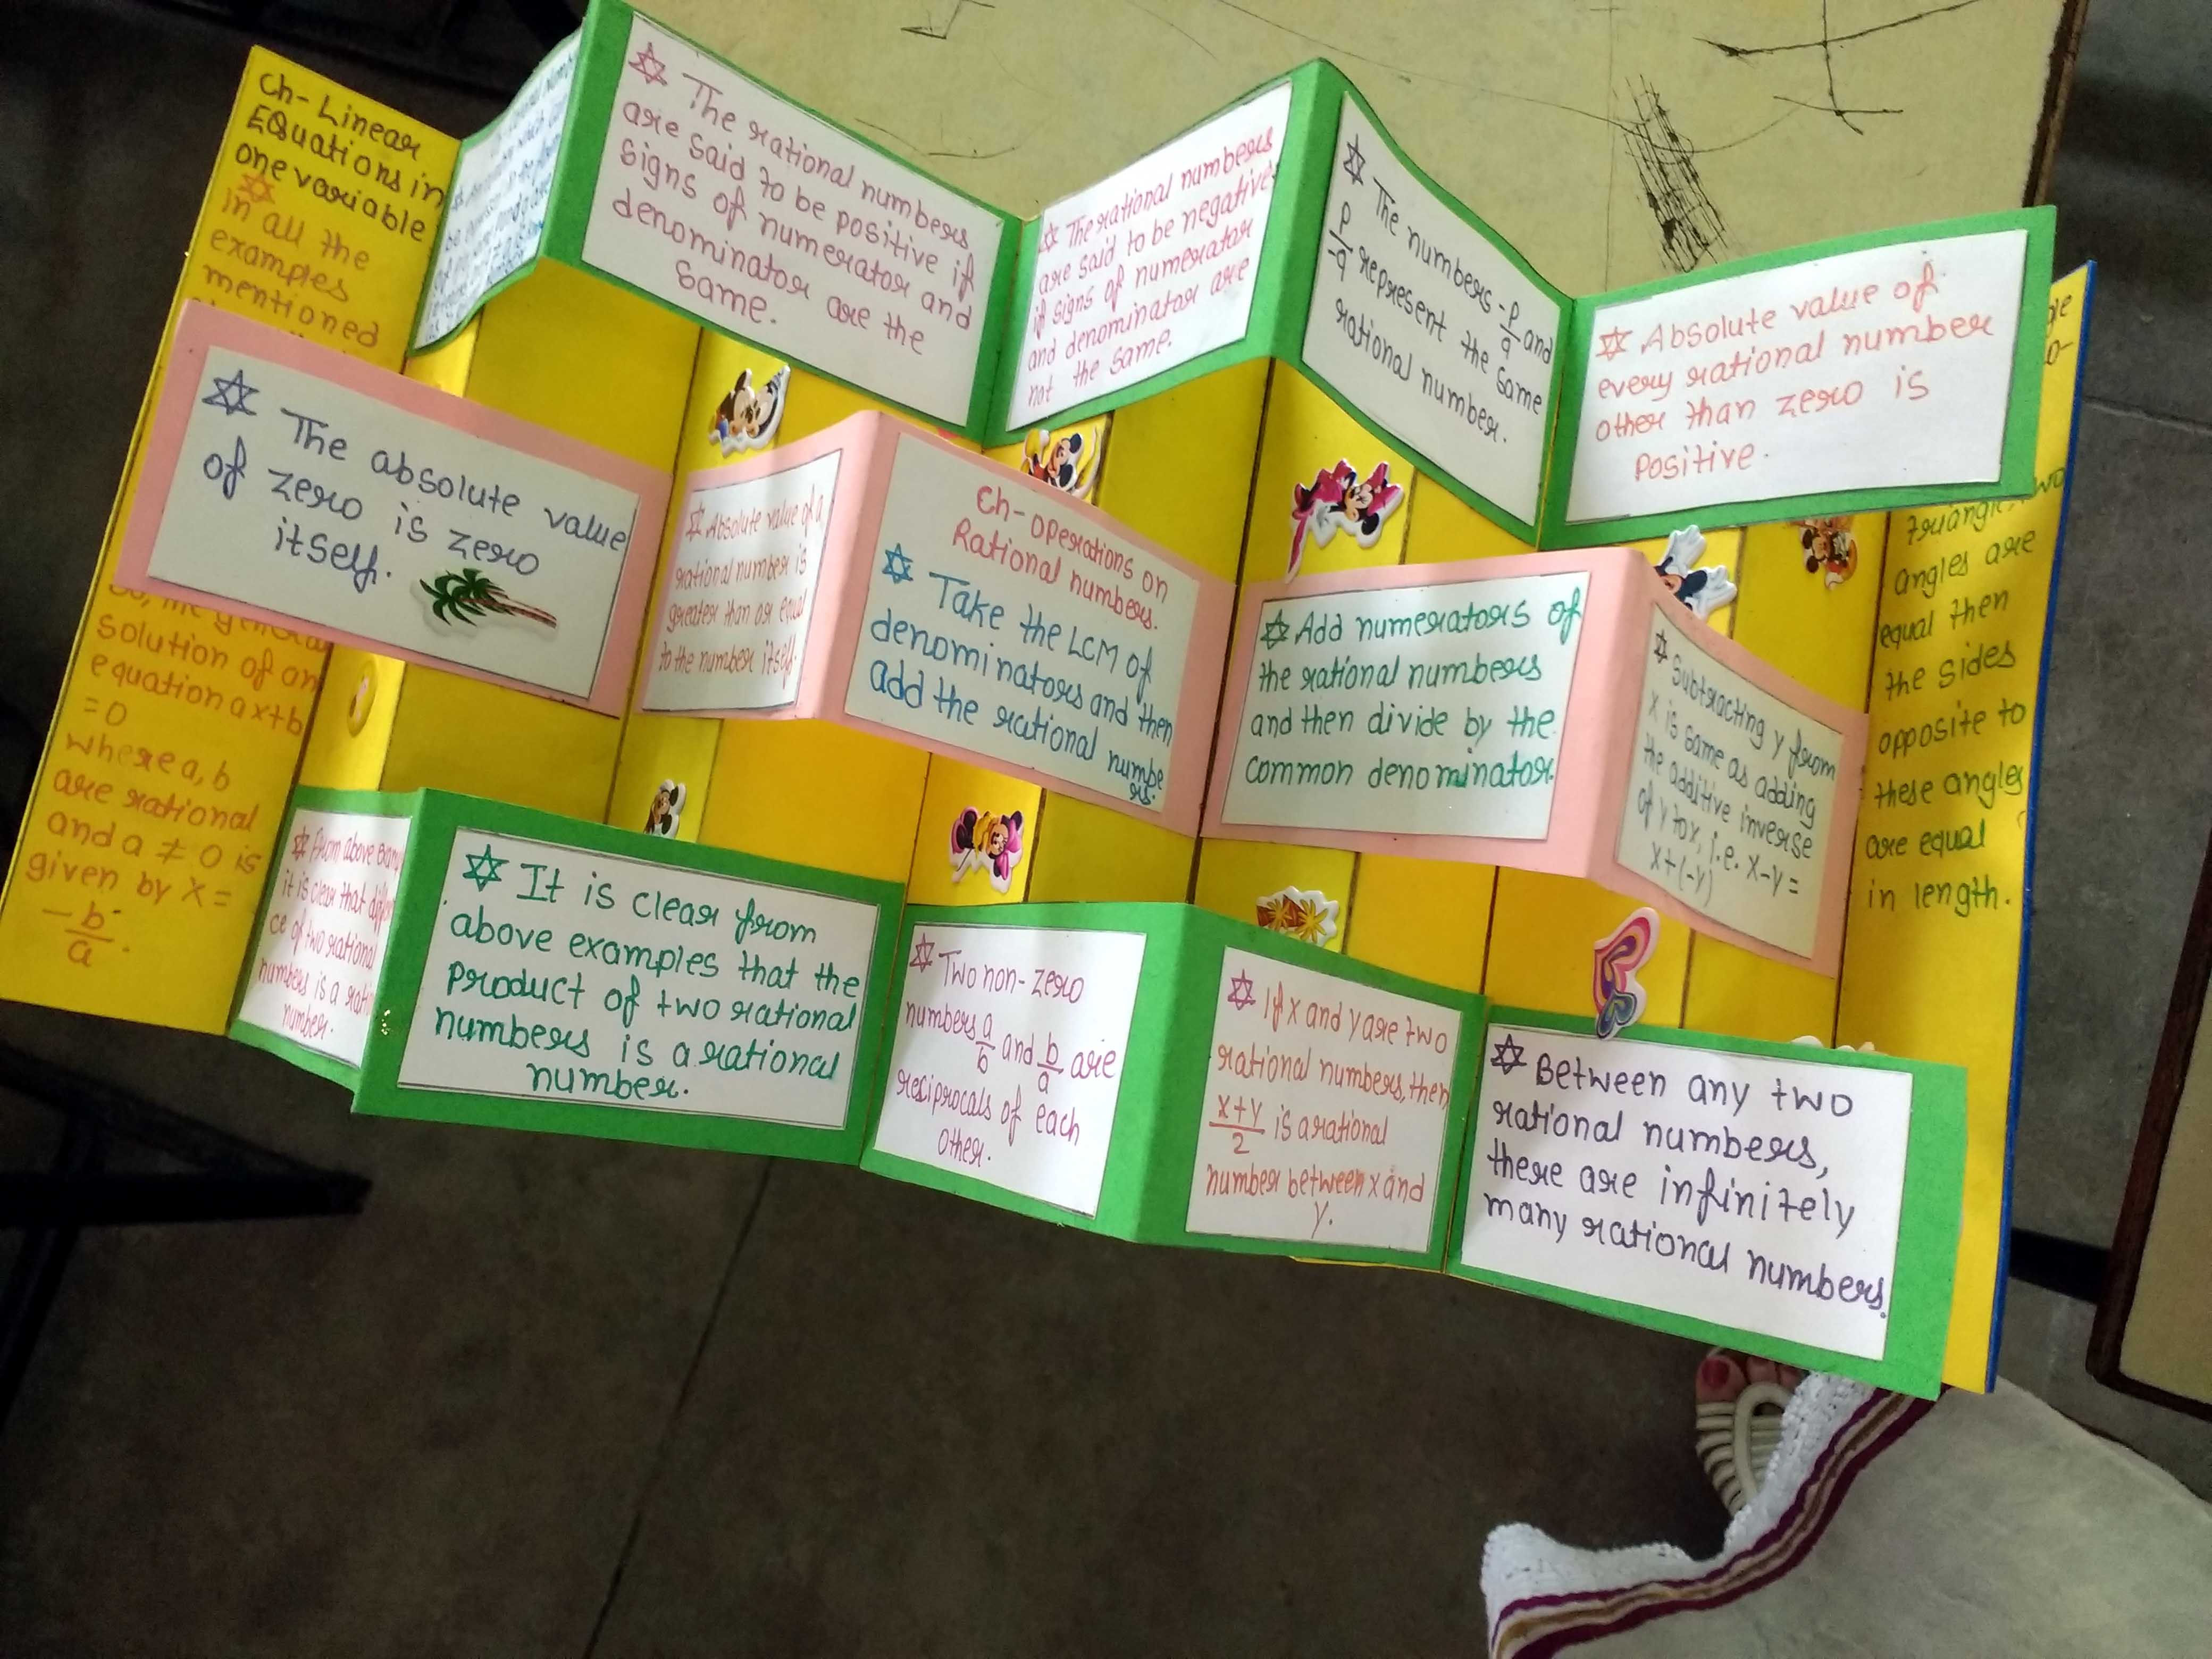 Ch- Linear
Equations in
one variable
In all the
examples
mentioned
solution of an
equation ax+b
=0
where a, b
are rational
and a ≠ 0 is
given by x =
-b/a.
The rational numbers
are said to be positive if
signs of numerator and
denominator are the
same.
The rational numbers
are said to be negative
if signs of numerator
and denominator are
not the same.
The numbers -p/q and
p/-q represent the same
rational number.
Absolute value of
every rational number
other than zero is
positive.
The absolute value
of zero is zero
itself.
Absolute value of a
rational number is
greater than or equal
to the number itself.
Ch- Operations on
Rational numbers.
Take the LCM of
denominators and then
add the rational numbe
rs.
Add numerators of
the rational numbers
and then divide by the
common denominator.
Subtracting y from
x is same as adding
the additive inverse
of y to x, i.e. x-y =
x+(-y)
From above
it is clear that
ce of two rational
numbers is a
number.
It is clear from
above examples that the
product of two rational
numbers is a rational
number.
Two non-zero
numbers a/b and b/a are
reciprocals of each
other.
If x and y are two
rational numbers, then
x+y/2 is a rational
number between x and
y.
Between any two
rational numbers,
there are infinitely
many rational numbers.
angles are
equal then
the sides
opposite to
these angles
are equal
in length.